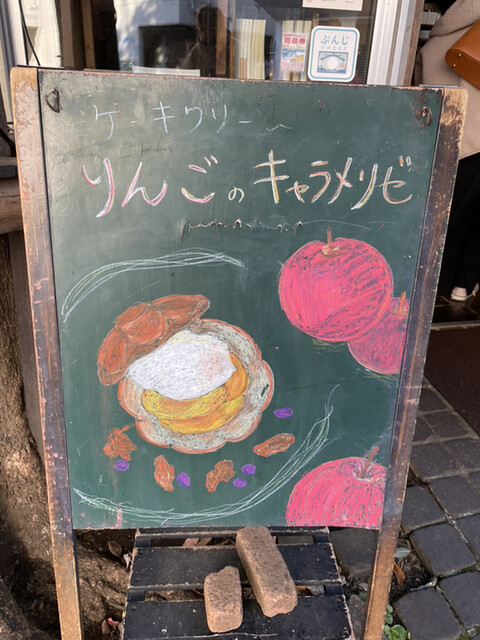 ぶんじ
商品券
ケーキツリー
りんごのキャラメリゼ